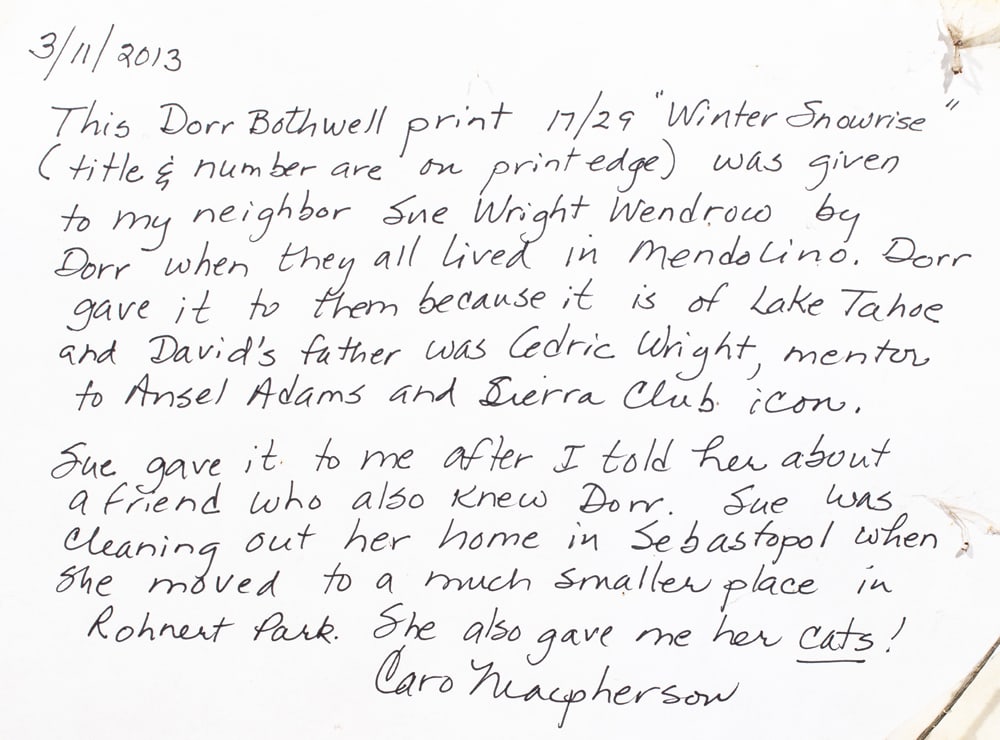 3/11/2013
This Dorr Bothwell print 17/29 "Winter Snowrise"
(title & number are on print edge) was given
to my neighbor Sue Wright Wendrow by
Dorr when they all lived in Mendocino. Dorr
gave it to them because it is of Lake Tahoe
and David's father was Cedric Wright, mentor
to Ansel Adams and Sierra Club icon.
Sue gave it to me after I told her about
a friend who also knew Dorr. Sue was
cleaning out her home in Sebastopol when
she moved to a much smaller place in
Rohnert Park. She also gave me her cats!
Caro Macpherson